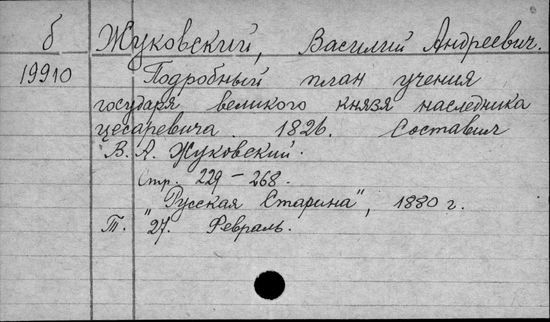 б Жуковский, Василий Андреевич.
19910 Подробный план учения
государя великого князя наследника
цесаревича. 1826. Составил
В. А. Жуковский.
Стр. 229 – 268.
"Русская Старина", 1880 г.
Т. 27. Февраль.